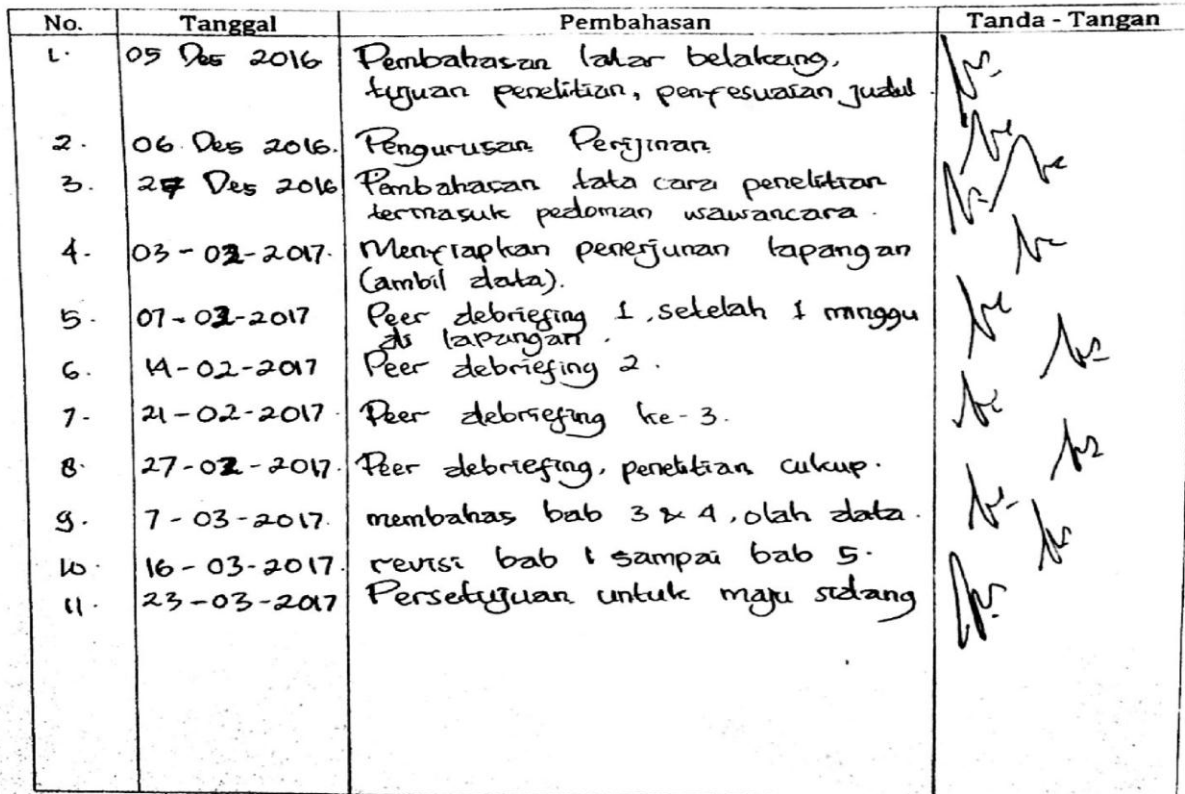 No. Tanggal Pembahasan Tanda - Tangan
1. 05 Des 2016 Pembahasan latar belakang,
tujuan penelitian, penyesuaian judul.
2. 06 Des 2016. Pengurusan Perijinan
3. 27 Des 2016 Pembahasan tata cara penelitian
termasuk pedoman wawancara.
4. 03-02-2017. Menyiapkan penerjunan lapangan
(ambil data).
5. 07-02-2017 Peer debriefing 1, setelah 1 minggu
di lapangan.
6. 14-02-2017 Peer debriefing 2.
7. 21-02-2017. Peer debriefing ke-3.
8. 27-02-2017. Peer debriefing, penelitian cukup.
9. 7-03-2017. membahas bab 3 & 4, olah data.
10. 16-03-2017. revisi bab 1 sampai bab 5.
11. 23-03-2017 Persetujuan untuk maju sidang